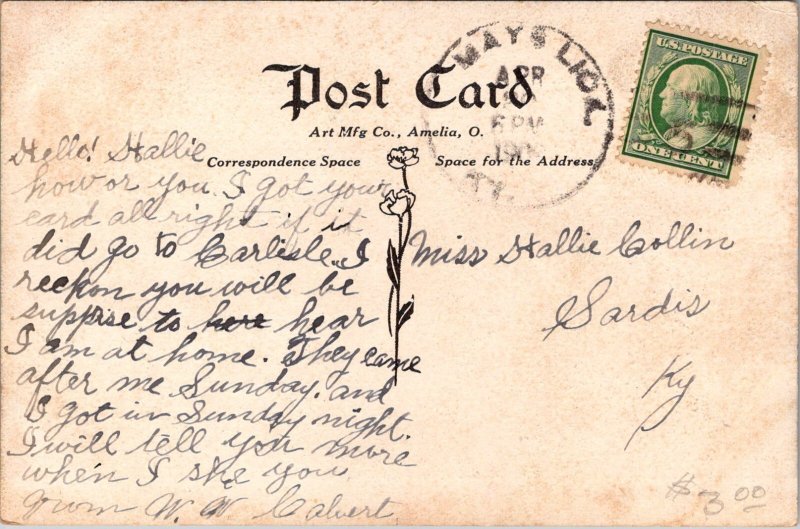 Post Card
Art Mfg Co., Amelia, O.
Correspondence Space
Space for the Address
MAYS LICK
APR
6 PM
KY.
U.S. POSTAGE
ONE CENT
Hello! Hallie
how or you. I got your
card all right if it
did go to Carlisle. I
reckon you will be
supprise to here hear
I am at home. They came
after me Sunday. and
I got in Sunday night.
I will tell you more
when I see you
from W. W. Calvert
Miss Hallie Collin
Sardis
Ky
$3.00